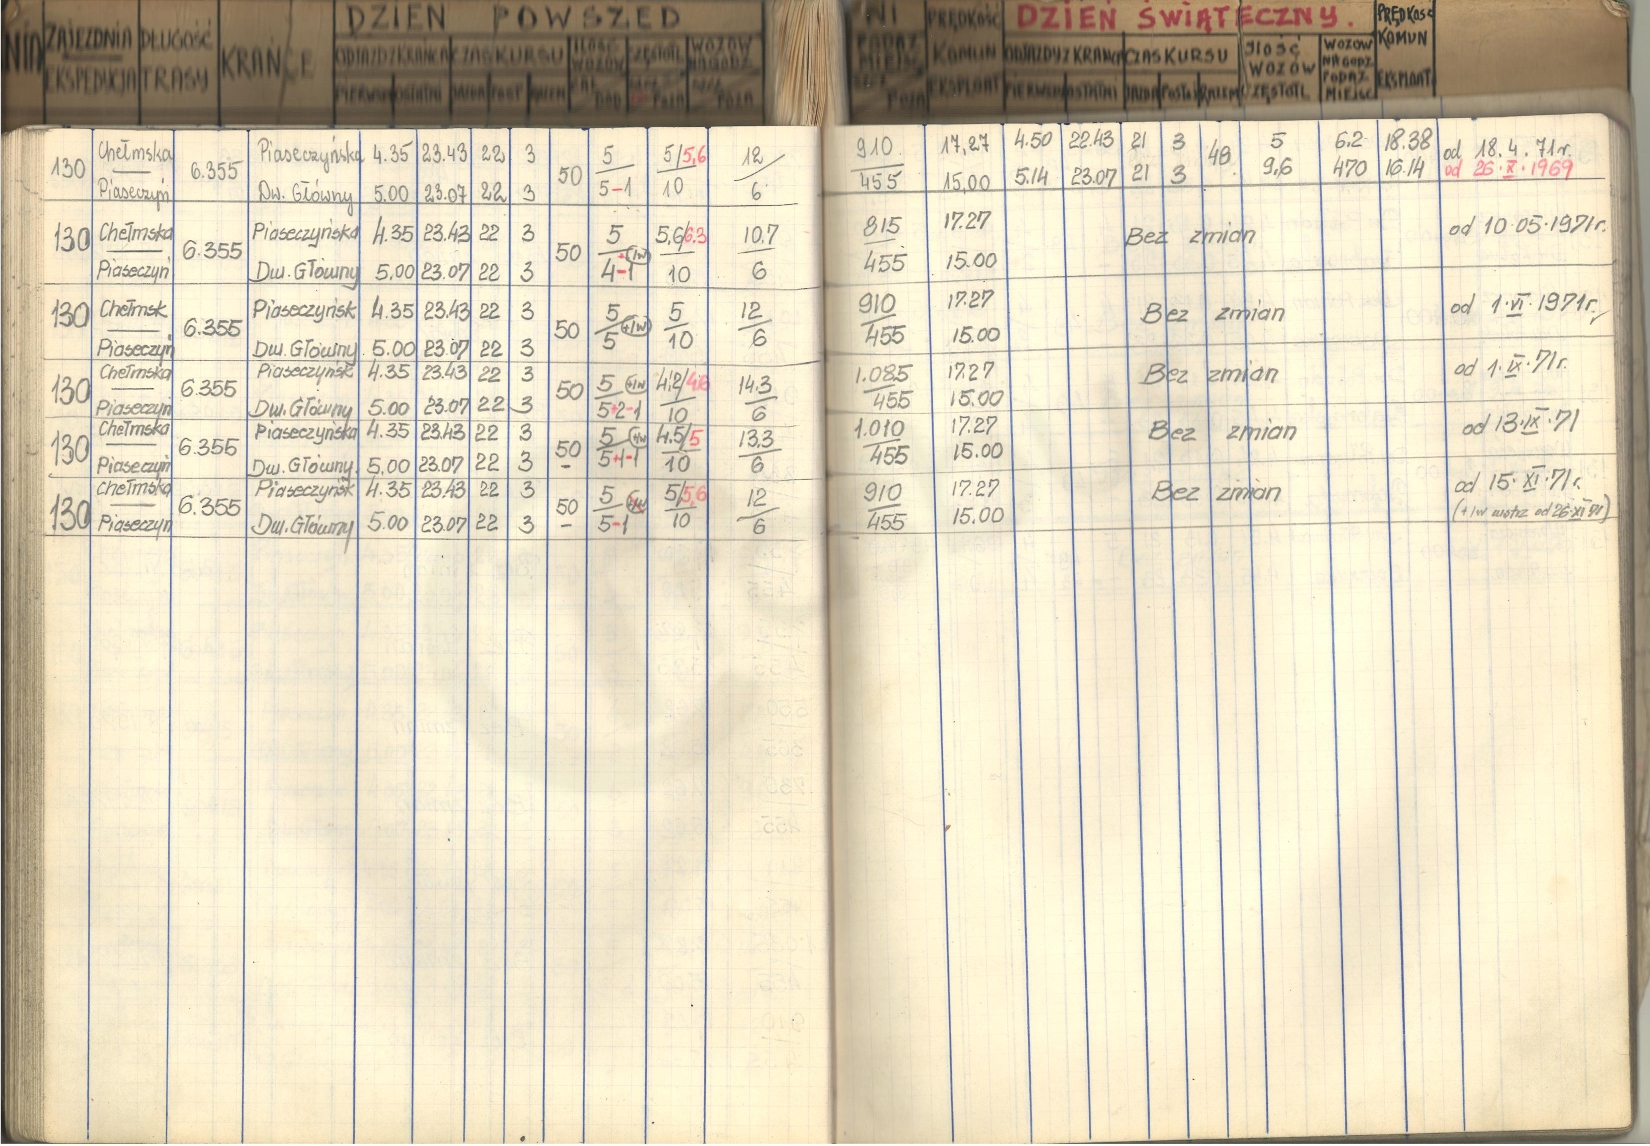 DZIEŃ POWSZED NI PRĘDKOŚĆ DZIEŃ ŚWIĄTECZNY. PRĘDKOŚĆ
NIA ZAJEZDNIA DŁUGOŚĆ KRAŃCE ODJAZD Z KRAŃCA CZAS KURSU ILOŚĆ WOZÓW CZĘSTOTL WOZÓW NA GODZ KOMUN ODJAZDY Z KRAŃCA CZAS KURSU ILOŚĆ WOZÓW WOZÓW NA GODZ KOMUN
EKSPEDYCJA TRASY PIERWSZ OSTATNI JAZDA POST RAZEM POZA POZA EKSPLOAT PIERWSZ OSTATNI JAZDA POSTÓJ RAZEM CZĘSTOTL PODAŻ MIEJSC EKSPLOAT
130 Chełmska 6.355 Piaseczyńska 4.35 23.43 22 3 50 5 5/5,6 12 910 17,27 4.50 22.43 21 3 48 5 6.2 18.38 od 18.4.71r.
Piaseczyń Dw. Główny 5.00 23.07 22 3 5-1 10 6 455 15,00 5.14 23.07 21 3 9,6 470 16.14 od 26.X.1969
130 Chełmska 6.355 Piaseczyńska 4.35 23.43 22 3 50 5 5,6/6.3 10.7 815 17.27 Bez zmian od 10.05.1971r.
Piaseczyń Dw. Główny 5.00 23.07 22 3 4-1 (+1w) 10 6 455 15.00
130 Chełmsk. 6.355 Piaseczyńsk 4.35 23.43 22 3 50 5 5 12 910 17.27 Bez zmian od 1.VI.1971r.
Piaseczyń Dw. Główny 5.00 23.07 22 3 5 (+1w) 10 6 455 15.00
130 Chełmska 6.355 Piaseczyńsk 4.35 23.43 22 3 50 5 (+1w) 4,2/4.6 14.3 1.085 17.27 Bez zmian od 1.IX.71r.
Piaseczyń Dw. Główny 5.00 23.07 22 3 5+2-1 10 6 455 15.00
130 Chełmska 6.355 Piaseczyńska 4.35 23.43 22 3 50 5 (+1w) 4.5/5 13.3 1.010 17.27 Bez zmian od 13.IX.71
Piaseczyń Dw. Główny. 5.00 23.07 22 3 - 5+1-1 10 6 455 15.00
130 Chełmska 6.355 Piaseczyńsk 4.35 23.43 22 3 50 5 5/5,6 12 910 17.27 Bez zmian od 15.XI.71r.
Piaseczyń Dw. Główny 5.00 23.07 22 3 - 5-1 10 6 455 15.00 (+1w wstrz od 26.XI 71)